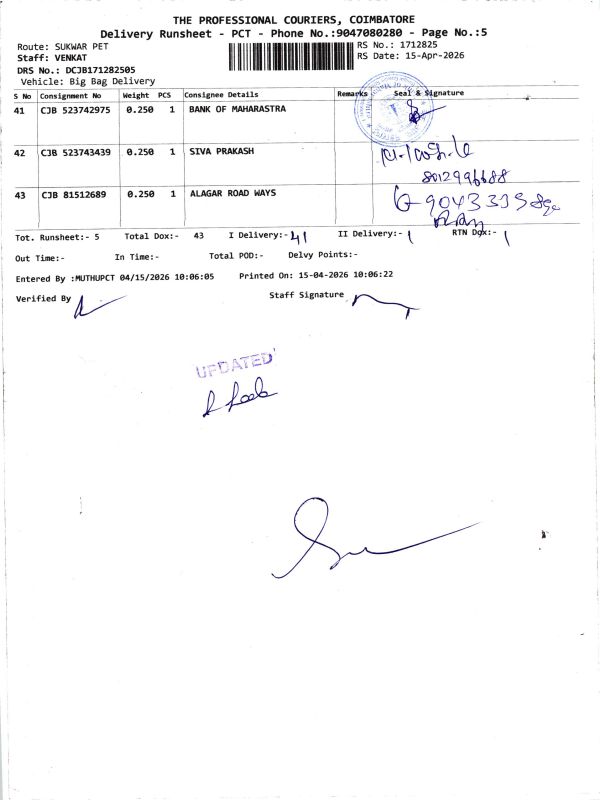 THE PROFESSIONAL COURIERS, COIMBATORE
Delivery Runsheet - PCT - Phone No.:9047080280 - Page No.:5
Route: SUKWAR PET
RS No.: 1712825
Staff: VENKAT
RS Date: 15-Apr-2026
DRS No.: DCJB171282505
Vehicle: Big Bag Delivery
S No Consignment No Weight PCS Consignee Details Remarks Seal & Signature
41 CJB 523742975 0.250 1 BANK OF MAHARASTRA
42 CJB 523743439 0.250 1 SIVA PRAKASH
8012996688
43 CJB 81512689 0.250 1 ALAGAR ROAD WAYS
Tot. Runsheet:- 5 Total Dox:- 43 I Delivery:- 41 II Delivery:- 1 RTN Dox:- 1
Out Time:- In Time:- Total POD:- Delvy Points:-
Entered By :MUTHUPCT 04/15/2026 10:06:05 Printed On: 15-04-2026 10:06:22
Verified By Staff Signature
UPDATED